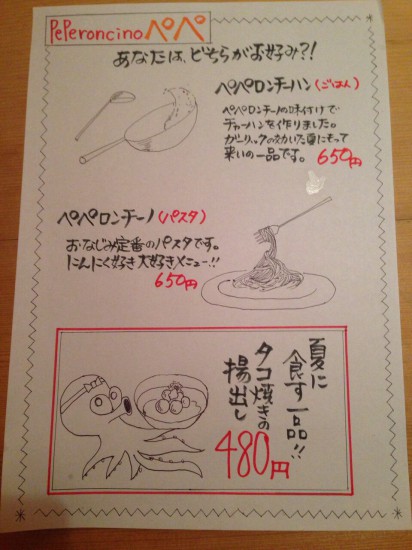 PePeroncino ペペ
あなたは、どちらがお好み?!
ペペロンチーハン(ごはん)
ペペロンチーノの味付けで
チャーハンを作りました。
ガーリックの効いた夏にもって
来いの一品です。 650円
ペペロンチーノ(パスタ)
お・なじみ定番のパスタです。
にんにく好き大好きメニュー!!
650円
夏に
食す一品!!
タコ焼きの
揚出し
480円